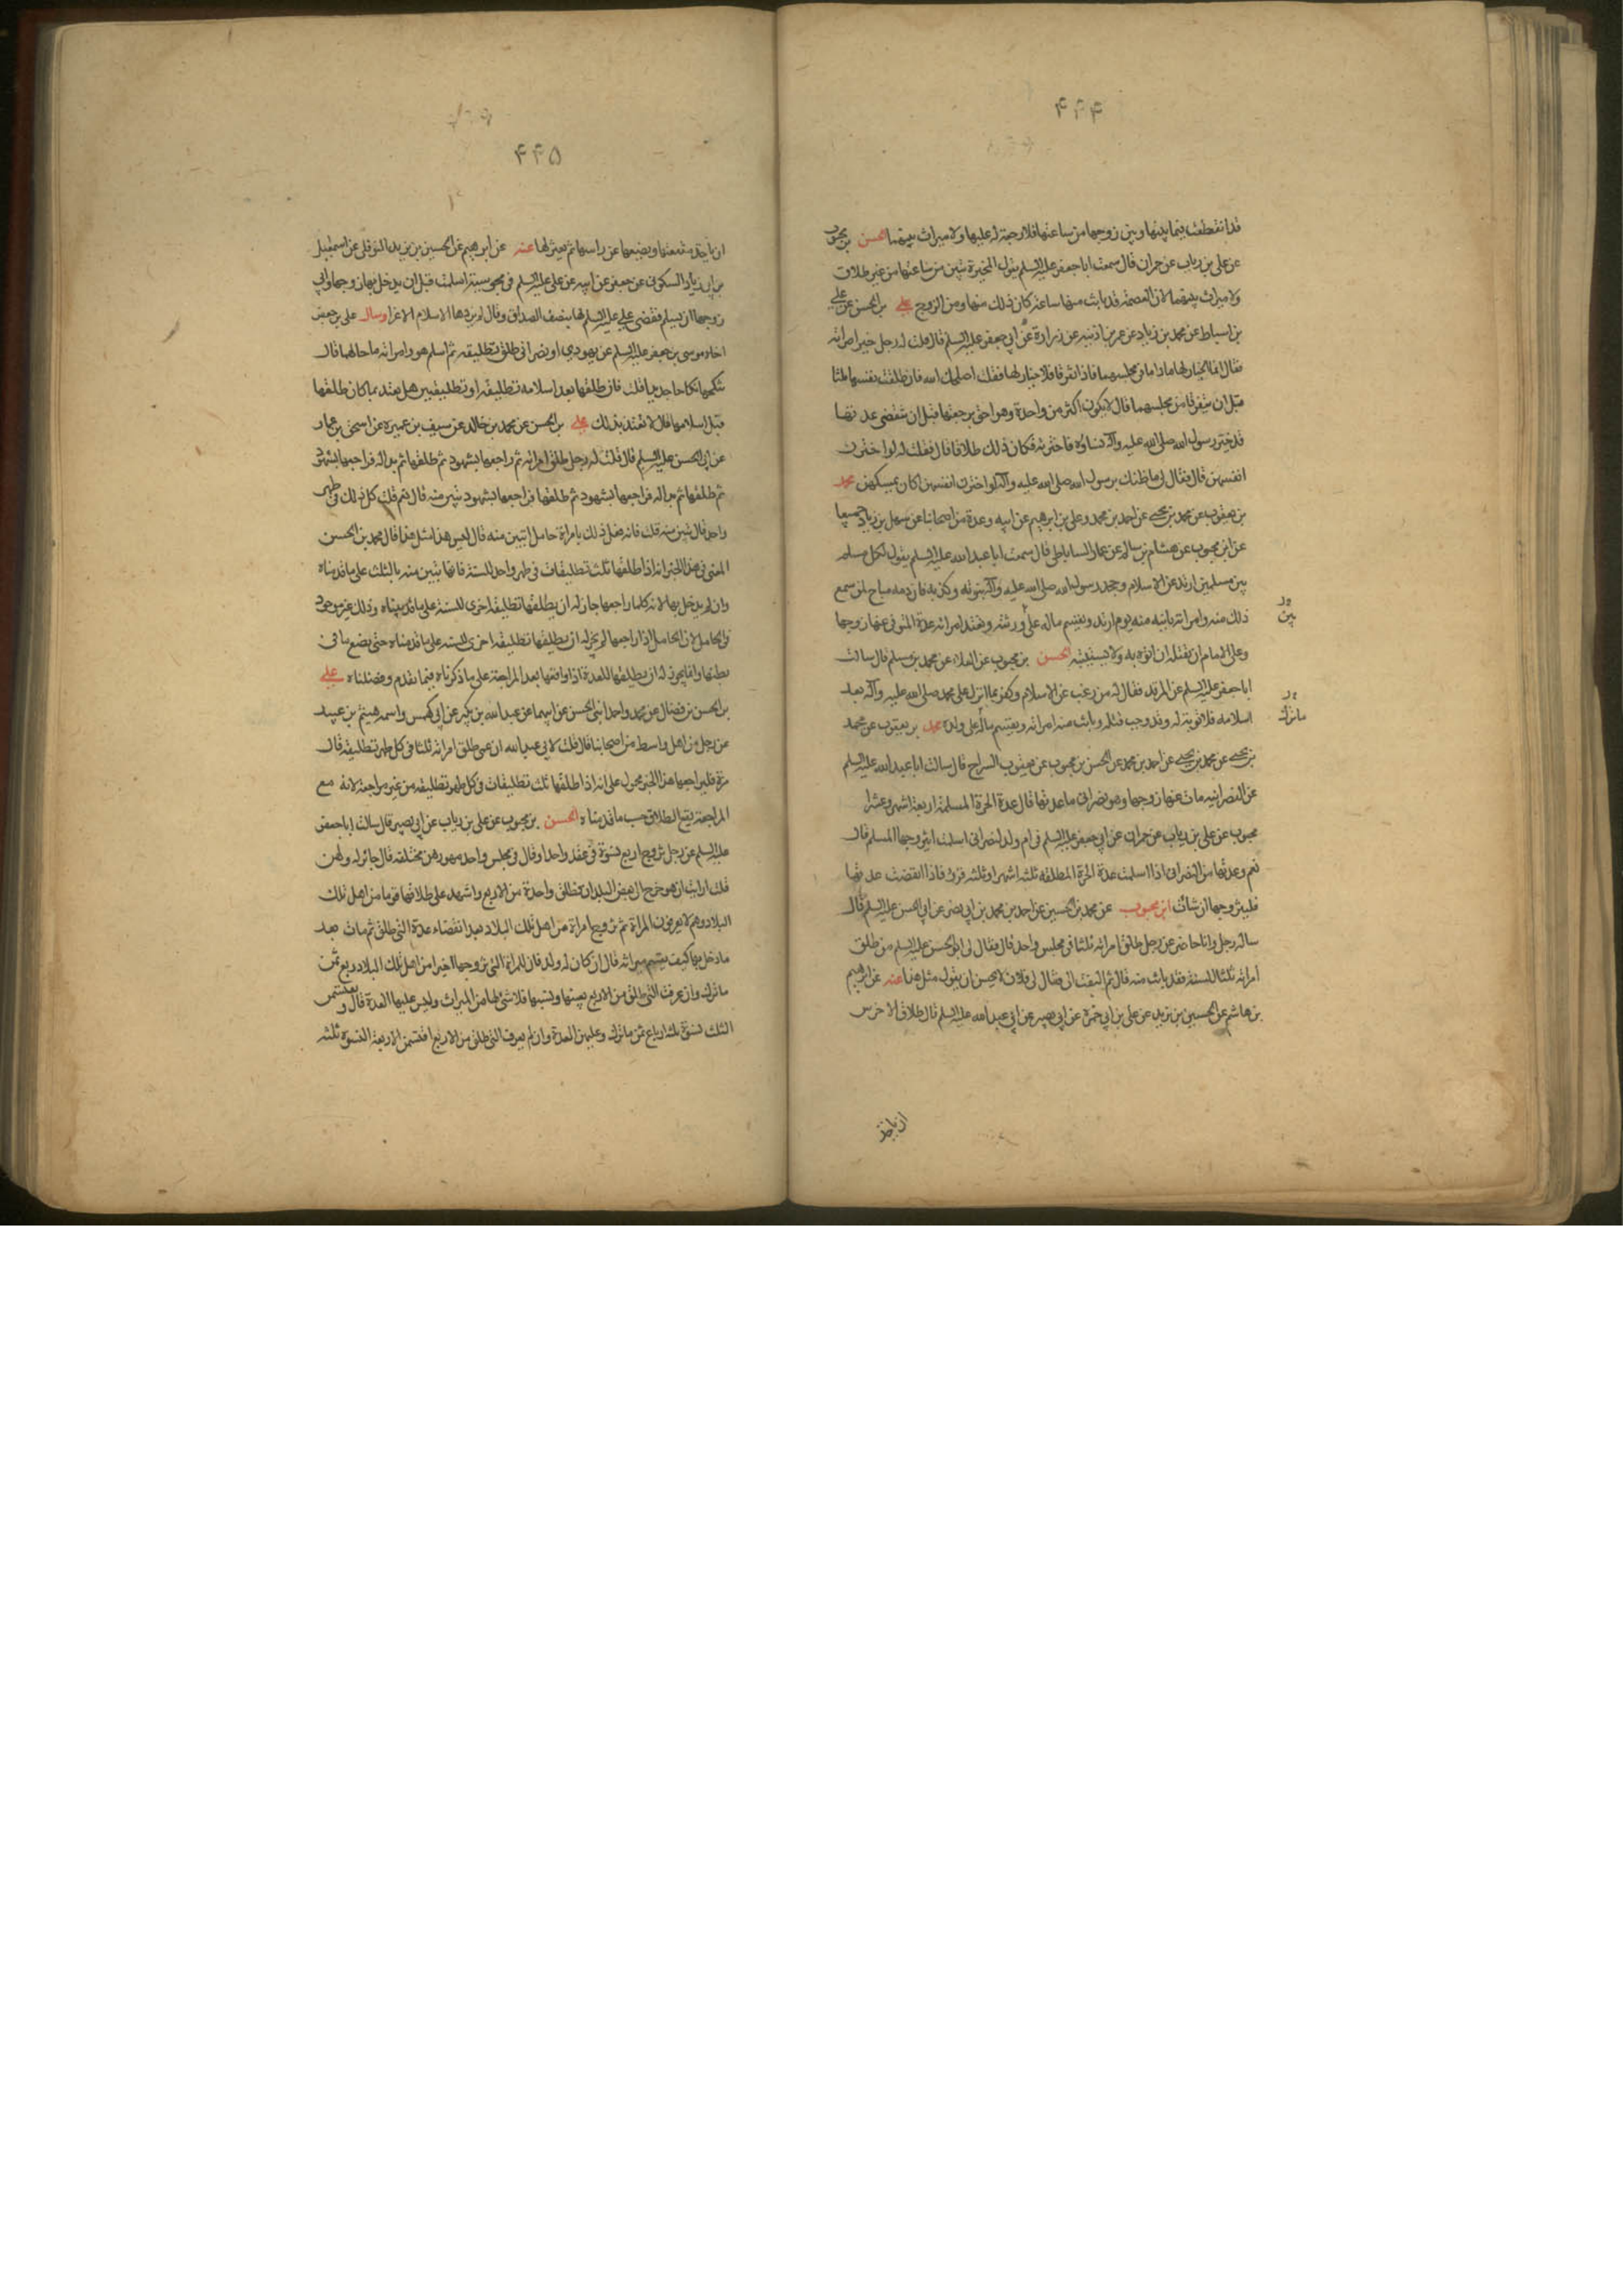 ۴۴۴
قد انقطعت فيما بينها وبين زوجها من ساعتها فلا رجعة له عليها ولا ميراث بينهما الحسن بن محبوب
عن علي بن رياب عن حمران قال سمعت ابا جعفر عليه السلم يقول المخيرة تبين من ساعتها من غير طلاق
ولا ميراث بينهما لان العصمة قد بانت منها ساعة كان ذلك منها ومن الزوج علي بن الحسن عن علي
بن اسباط عن محمد بن زياد عن عمر بن اذينه عن زرارة عن ابي جعفر عليه السلم قال قلت له رجل خير امراته
فقال انما الخيار لها ما داما في مجلسهما فاذا تفرقا فلا خيار لها فقلت اصلحك الله فان طلقت نفسها ثلثا
قبل ان يتفرقا من مجلسهما قال لا يكون اكثر من واحدة وهو احق برجعتها قبل ان تنقضي عدتها
قد خير رسول الله صلى الله عليه وآله نساؤه فاخترنه فكان ذلك طلاقا قال فقلت له لو اخترن
انفسهن قال فقال لي ما ظنك برسول الله صلى الله عليه وآله لو اخترن انفسهن اكان يمسكهن محمد
بن يعقوب عن محمد بن يحيى عن احمد بن محمد وعلي بن ابرهيم عن ابيه وعدة من اصحابنا عن سهل بن زياد جميعا
عن ابن محبوب عن هشام بن سالم عن عمار الساباطي قال سمعت ابا عبد الله عليه السلم يقول لكل مسلم
بين مسلمين ارتد عن الاسلام وجحد رسول الله صلى الله عليه وآله نبوته وكذبه فان دمه مباح لمن سمع
ذلك منه وامراته باينه منه يوم ارتد ويقسم ماله على ورثته وتعتد امراته عدة المتوفى عنها زوجها
بين
وعلى الامام ان يقتله ان اتوه به ولا يستتيبه الحسن بن محبوب عن العلا عن محمد بن مسلم قال سالت
ابا جعفر عليه السلم عن المرتد فقال له من رغب عن الاسلام وكفر بما انزل على محمد صلى الله عليه وآله بعد
اسلامه فلا توبة له وقد وجب قتله وبانت منه امراته ويقسم ماله على ولده محمد بن يعقوب عن محمد
ما ترك
بن يحيى عن محمد بن يحيى عن احمد بن محمد عن الحسن بن محبوب عن يعقوب السراج قال سالت ابا عبد الله عليه السلم
عن النصرانيه مات عنها زوجها وهو نصراني ما عدتها قال عدة الحرة المسلمة اربعة اشهر وعشرا
محبوب عن علي بن رياب عن حمران عن ابي جعفر عليه السلم في ام ولد لنصراني اسلمت ايتزوجها المسلم قال
نعم وعدتها من النصراني اذا اسلمت عدة الحرة المطلقه ثلثه اشهر او ثلثه قروء فاذا انقضت عدتها
فليتزوجها ان شات ابن محبوب عن محمد بن الحسين عن احمد بن محمد بن ابي نصر عن ابي الحسن عليه السلم قال
ساله رجل وانا حاضر عن رجل طلق امراته ثلثا في مجلس واحد قال فقال لي ابو الحسن عليه السلم من طلق
امراته ثلثا للسنة فقد بانت منه قال ثم التفت الي فقال لي فلان لا يحسن ان يقول مثل هذا عنه عن ابرهيم
بن هاشم عن الحسين بن يزيد عن علي بن ابي حمزة عن ابي بصير عن ابي عبد الله عليه السلم قال طلاق الاخرس
ان ياخذ
۴۴۵
ان ياخذ مقنعتها ويضعها على راسها ثم يعتزلها عنه عن ابرهيم عن الحسين بن يزيد النوفلي عن اسمعيل
بن ابي زياد السكوني عن جعفر عن ابيه عن علي عليه السلم في مجوسية اسلمت قبل ان يدخل بها زوجها وابى
زوجها ان يسلم فقضى علي عليه السلم لها بنصف الصداق وقال لم يزدها الاسلام الا عزا وسال علي بن جعفر
اخاه موسى بن جعفر عليه السلم عن يهودي او نصراني طلق تطليقه ثم اسلم هو وامراته ما حالهما قال
ينكحها نكاحا جديدا قلت فان طلقها بعد اسلامه تطليقه او تطليقتين هل يعتد بما كان طلقها
قبل اسلامها قال لا تعتد بذلك علي بن الحسن عن محمد بن خالد عن سيف بن عميره عن اسحق بن عمار
عن ابي الحسن عليه السلم قال قلت له رجل طلق امراته ثم راجعها بشهود ثم طلقها ثم بدا له فراجعها بشهود
ثم طلقها ثم بدا له فراجعها بشهود ثم طلقها فراجعها بشهود تبين منه قال نعم قلت كل ذلك في طهر
واحد قال تبين منه قلت فانه فعل ذلك بامراة حامل اتبين منه قال ليس هذا مثل هذا قال محمد بن الحسن
المعنى في هذا الخبر انه اذا طلقها ثلث تطليقات في طهر واحد للسنة فانها تبين منه بالثلث على ما قدمناه
وان لم يدخل بها لانه كلما راجعها جاز له ان يطلقها تطليقة اخرى للسنة على ما قد بيناه وذلك غير موجود
في الحامل لان الحامل اذا راجعها لم يجز له ان يطلقها تطليقه اخرى للسنه على ما قدمناه حتى تضع ما في
بطنها وانما يجوز له ان يطلقها للعدة اذا واقعها بعد المراجعة على ما ذكرناه فيما تقدم وفصلناه علي
بن الحسن بن فضال عن محمد واحمد ابني الحسن عن ابيهما عن عبد الله بن بكير عن ابي كهمس واسمه هيثم بن عبيد
عن رجل من اهل واسط من اصحابنا قال قلت لابي عبد الله ان عمي طلق امراته ثلثا في كل طهر تطليقه قال
مره فليراجعها هذا الخبر محمول على انه اذا طلقها ثلث تطليقات في كل طهر تطليقه من غير مراجعة لانه مع
المراجعة يقع الطلاق حسب ما قدمناه الحسن بن محبوب عن علي بن رياب عن ابي بصير قال سالت ابا جعفر
عليه السلم عن رجل تزوج اربع نسوة في عقد واحد او قال في مجلس واحد مهورهن مختلفه قال جائز له ولهن
قلت ارايت ان هو خرج الى بعض البلدان فطلق واحدة من الاربع واشهد على طلاقها قوما من اهل تلك
البلاد وهم لا يعرفون المراة ثم تزوج امراة من اهل تلك البلاد بعد انقضاء عدة التي طلق ثم مات بعد
ما دخل بها كيف يقسم ميراثه قال ان كان له ولد فان للمراة التي تزوجها اخيرا من اهل تلك البلاد ربع ثمن
ما ترك وان عرفت التي طلق من الاربع بعينها ونسبها فلا شئ لها من الميراث وليس عليها العدة قال ويقتسمن
الثلث نسوة ثلثه ارباع ثمن ما ترك وعليهن العدة وان لم يعرف التي طلق من الاربع اقتسمن الاربعة النسوة ثلثه